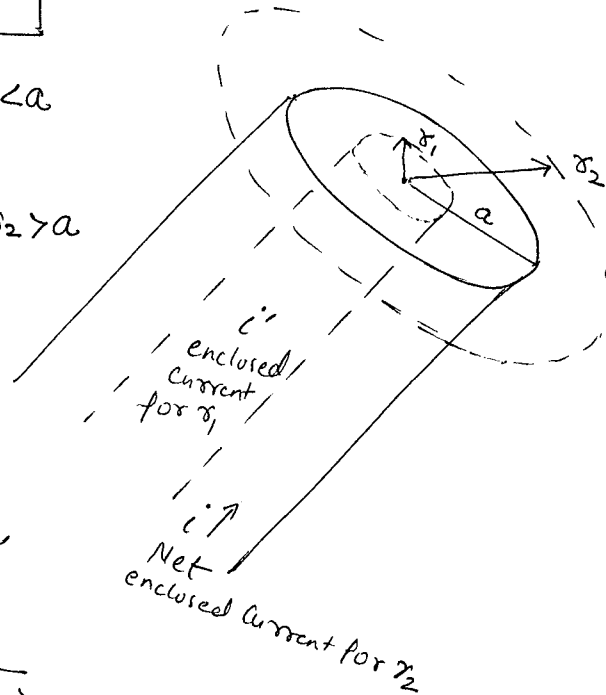 <a
r₁
r₂
r₂>a
a
i'
enclosed
current
for r₁
i
Net
enclosed current for r₂